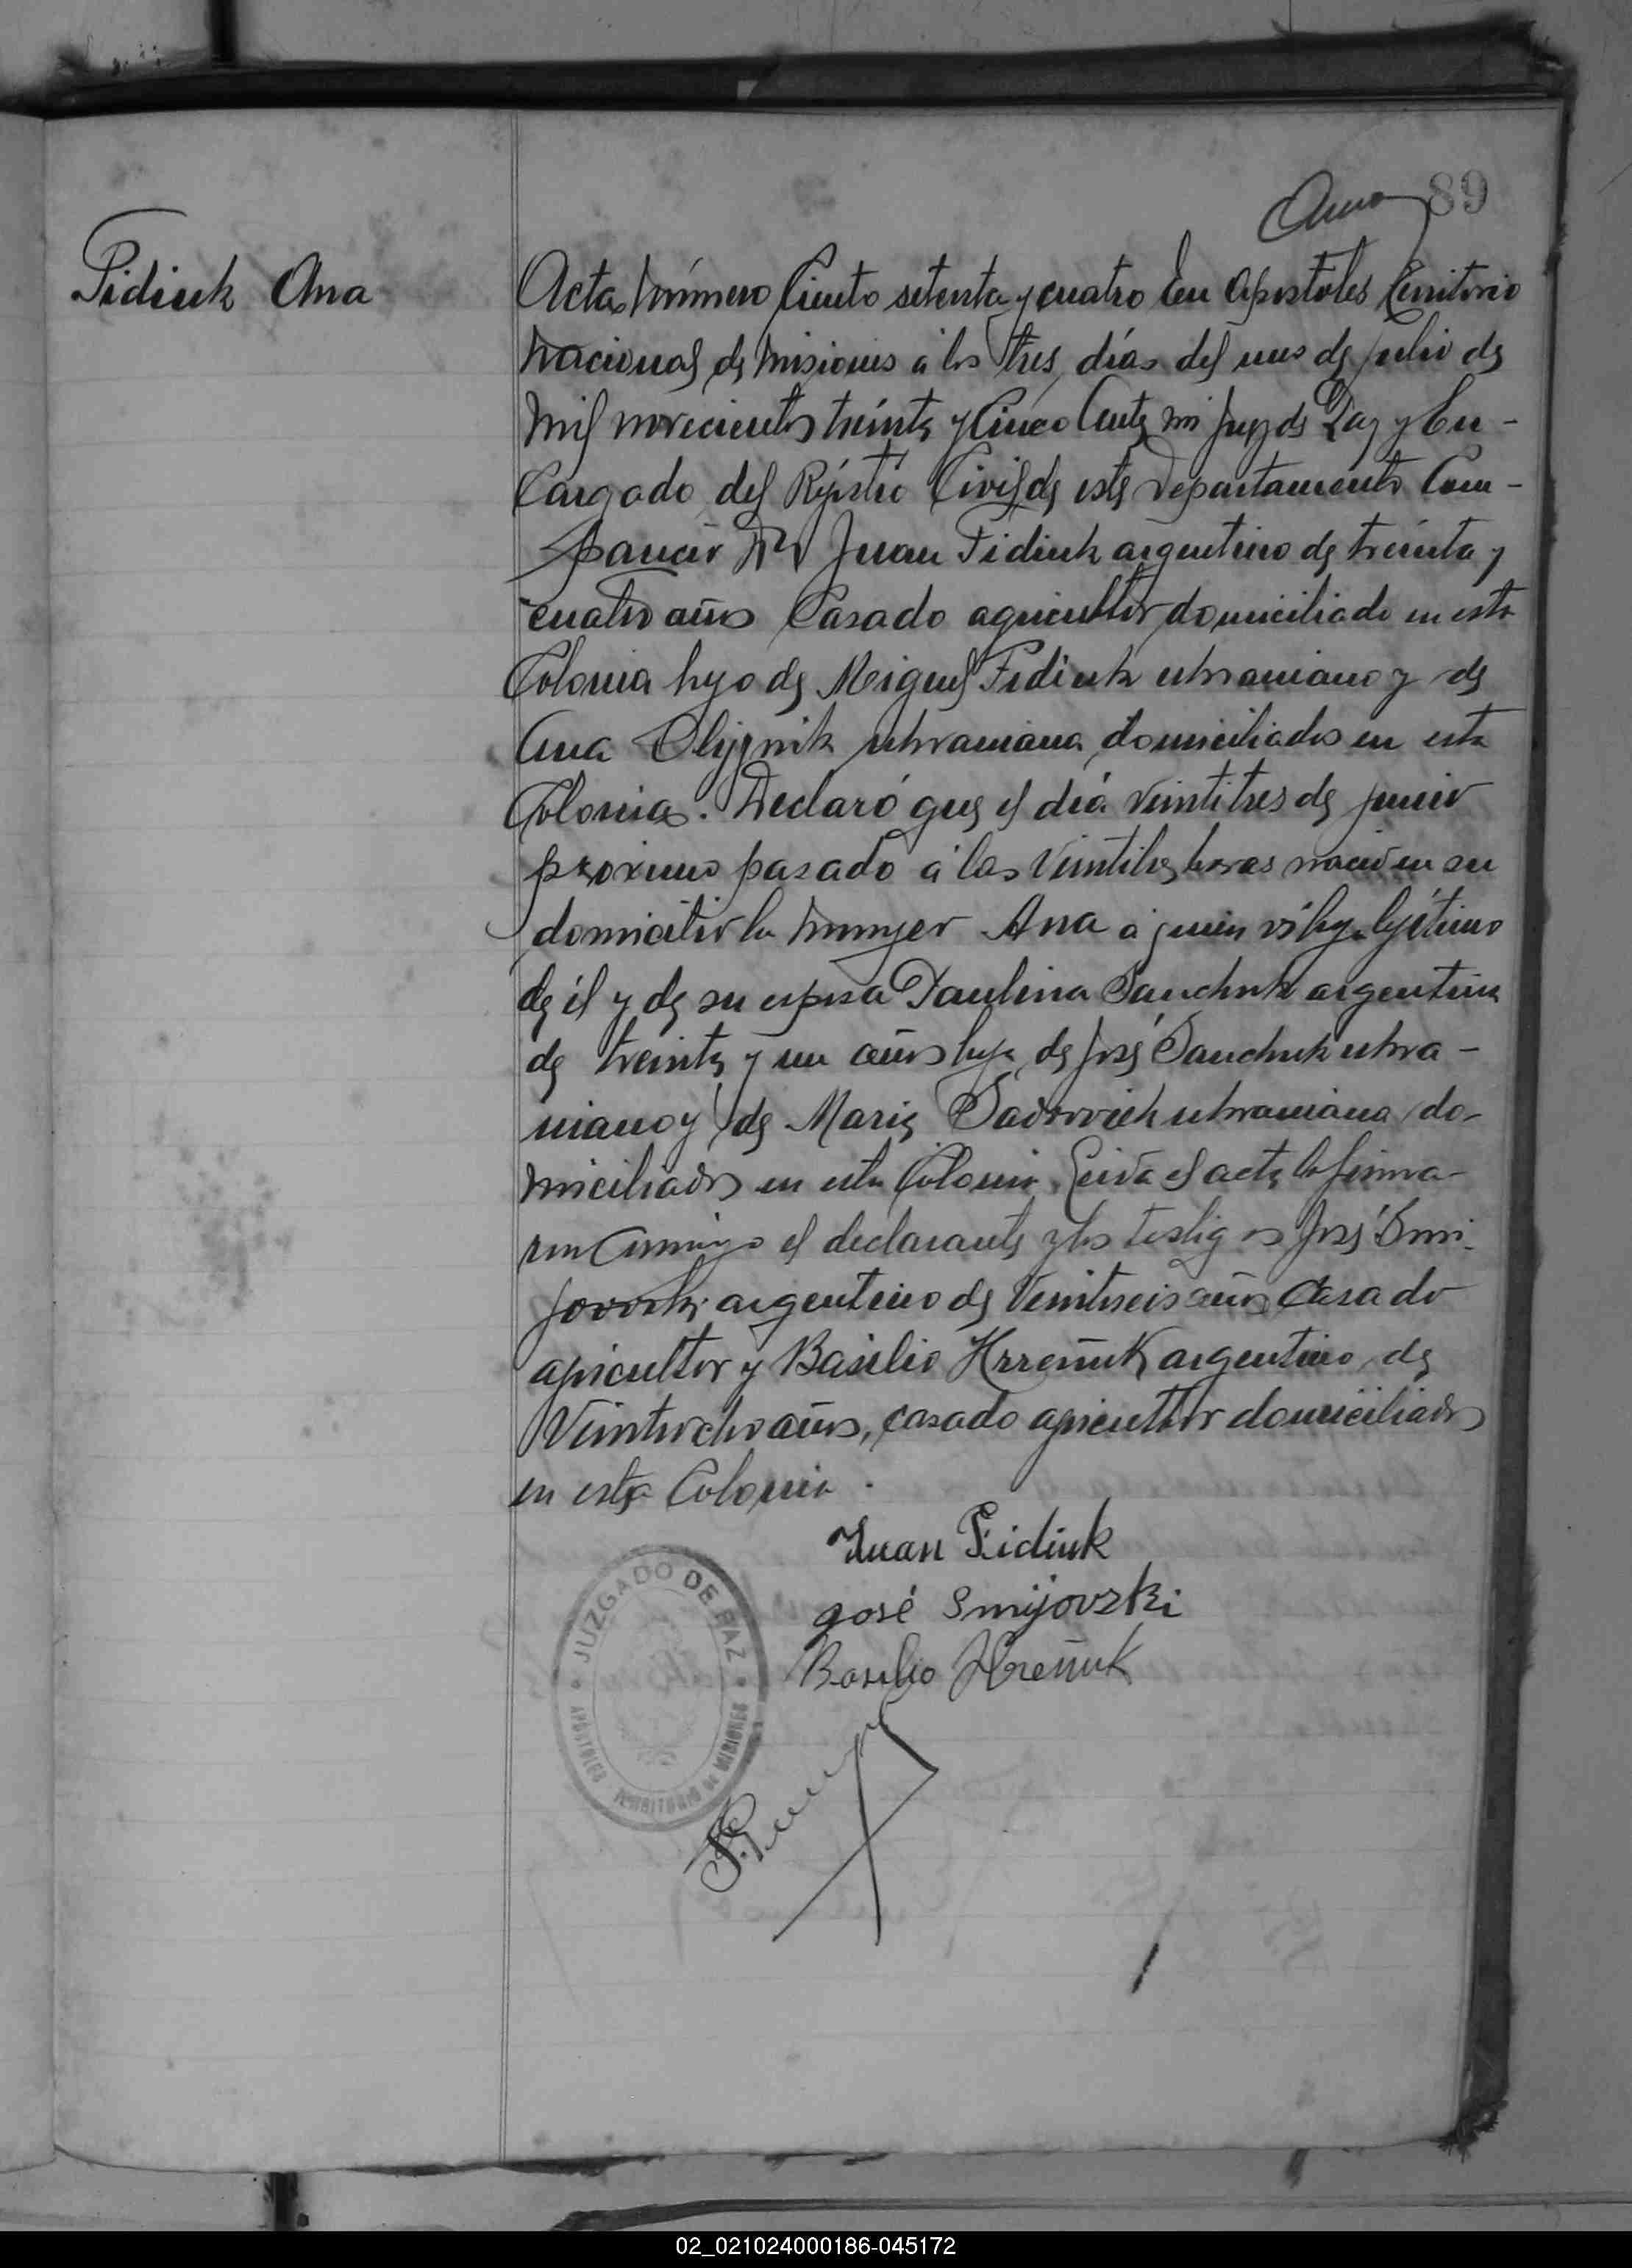 89
Fidiuk Ana
Acta Número Ciento setenta y cuatro En Apostoles Territorio
Nacional de Misiones á los tres días del mes de julio de
mil novecientos treinta y Cinco Ante mi Juez de Paz y En-
Cargado del Rejistro Civil de este Departamento Com-
pareció Dn Juan Fidiuk argentino de treinta y
cuatro años Casado agricultor domiciliado en esta
Colonia hijo de Miguel Fidiuk ukraniano y de
Ana Olijgnik ukraniana domiciliados en esta
Colonia. Declaró que el día veintitres de junio
proximo pasado á las Veintitres horas nació en su
domicilio la mujer Ana á quien vi hija lejítima
de él y de su esposa Paulina Sauchuk argentina
de treinta y un años hija de José Sauchuk ukra-
niano y de Maria ukraniana do-
miciliados en esta Colonia. Leida el acta la firma-
ron Conmigo el declarante y los testigos José Smi-
jovski argentino de Veintiseis años Casado
agricultor y Basilio Hreñuk argentino de
Veintiocho años, casado agricultor domiciliados
en esta Colonia.
Juan Fidiuk
José Smijovzki
Basilio Hreñuk
JUZGADO DE PAZ
APOSTOLES TERRITORIO DE MISIONES
02_021024000186-045172